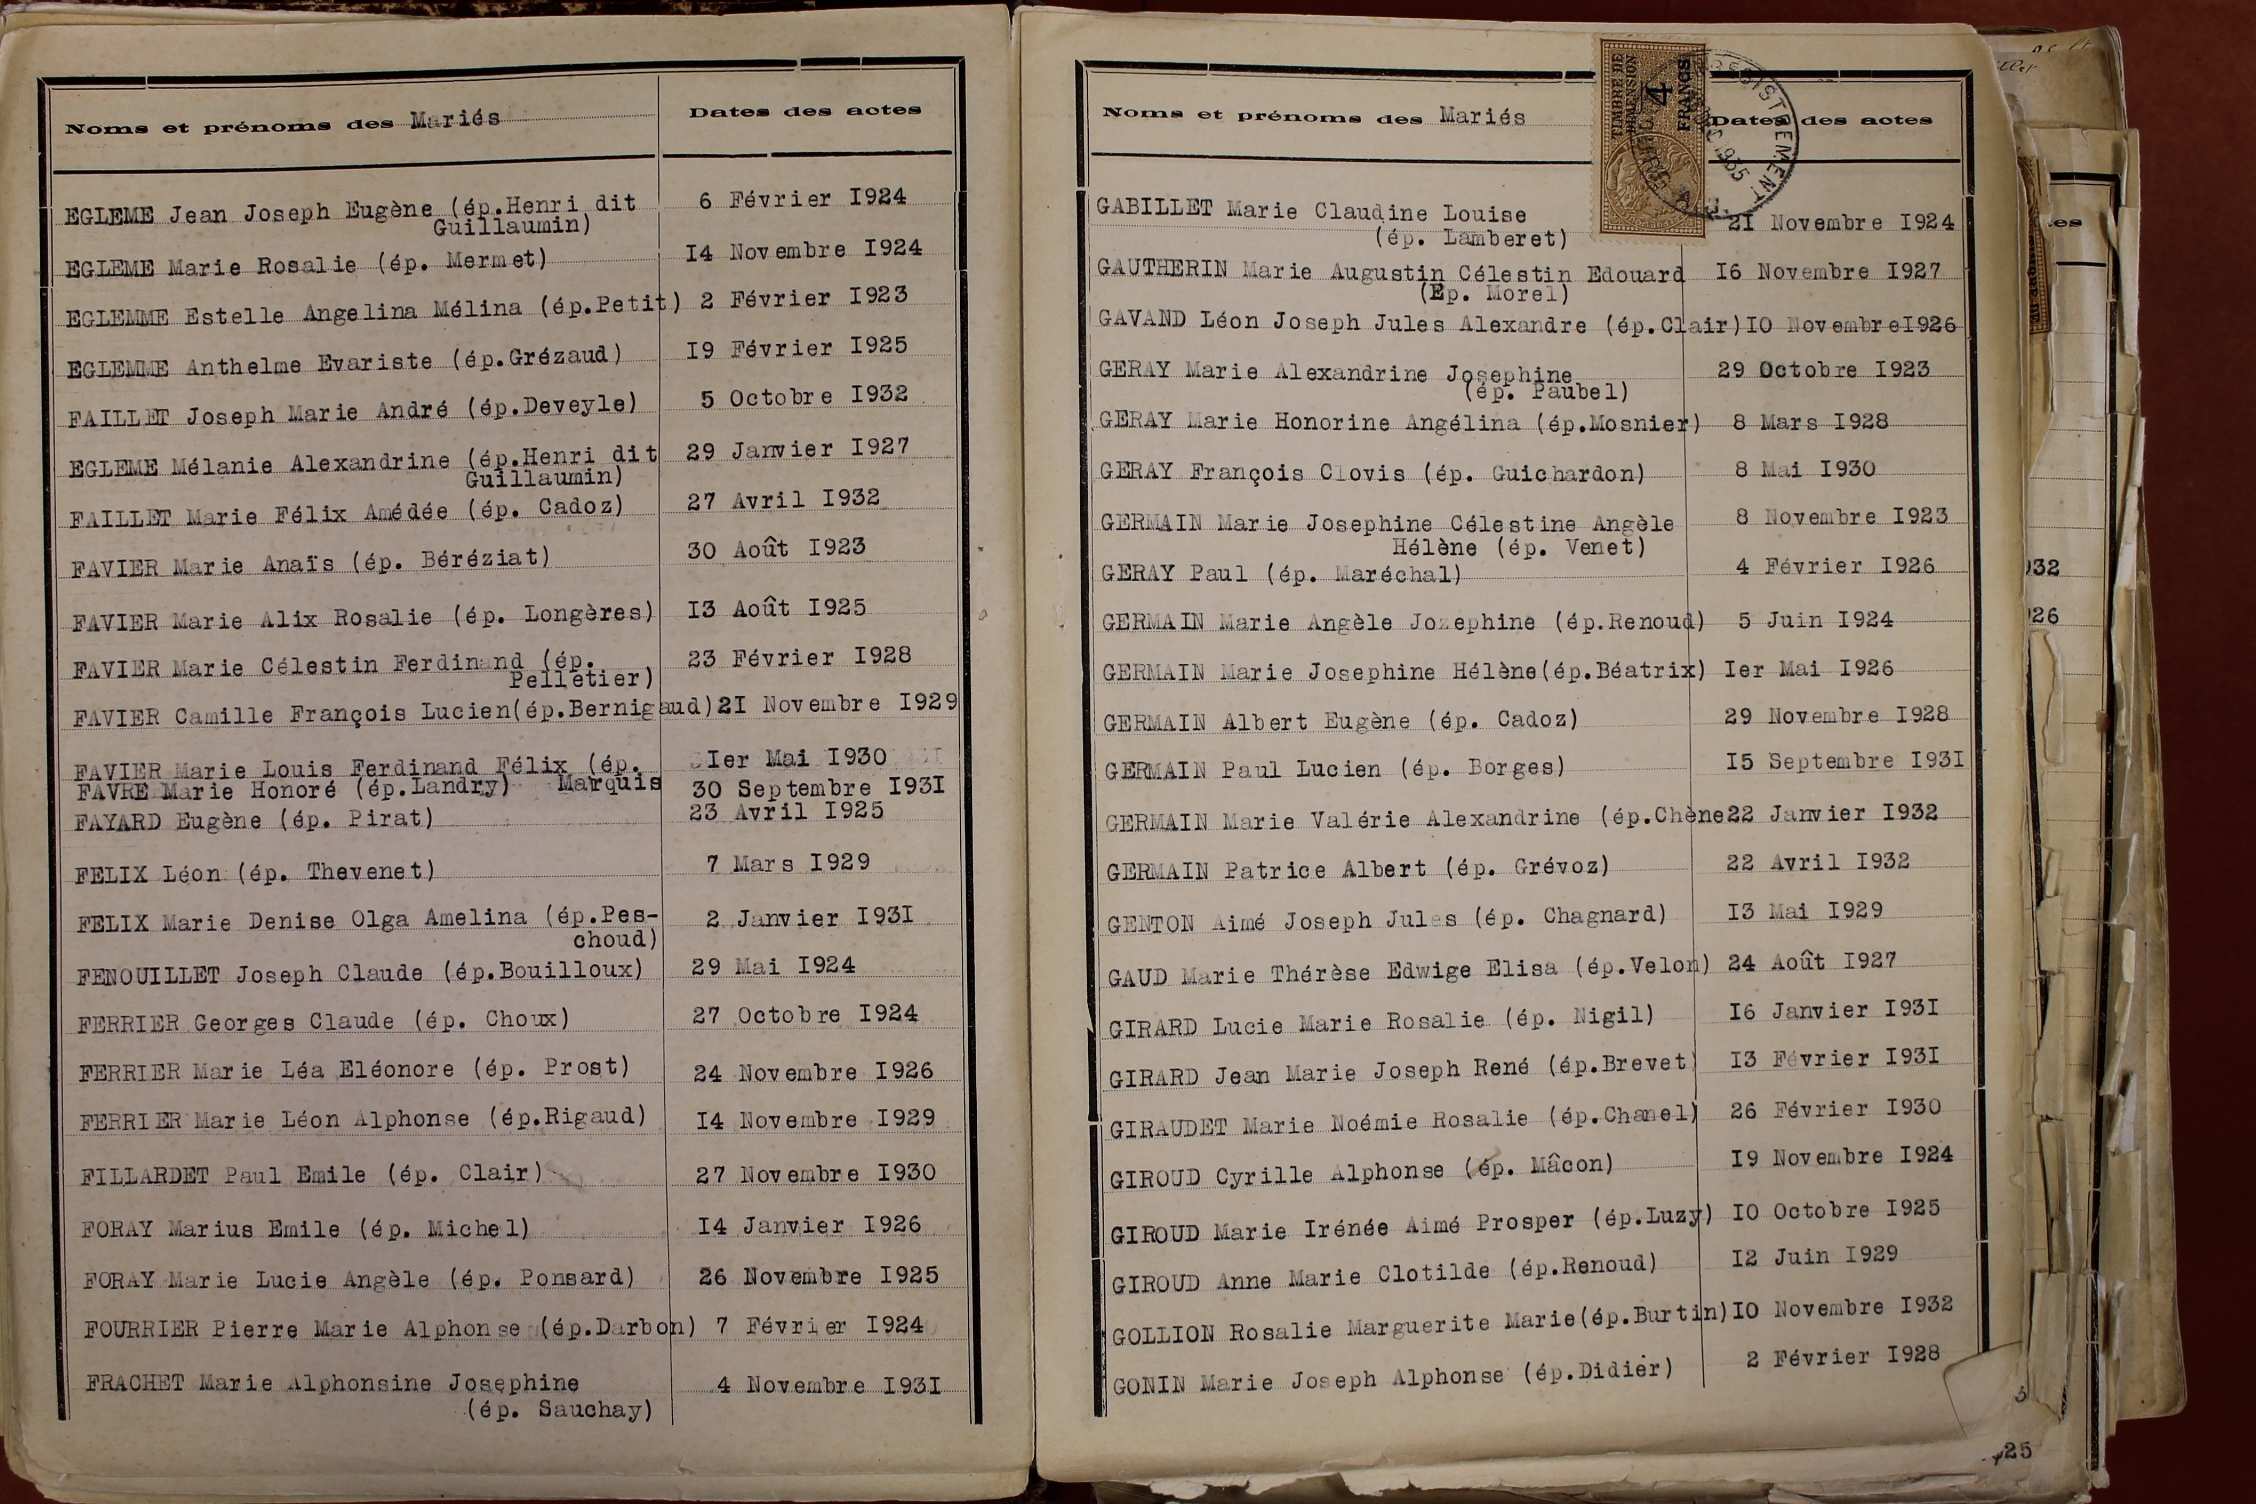 Noms et prénoms des Mariés Dates des actes
EGLEME Jean Joseph Eugène (ép.Henri dit 6 Février I924
Guillaumin)
EGLEME Marie Rosalie (ép. Mermet) I4 Novembre I924
EGLEMME Estelle Angelina Mélina (ép.Petit) 2 Février I923
EGLEMME Anthelme Evariste (ép.Grézaud) I9 Février I925
FAILLET Joseph Marie André (ép.Deveyle) 5 Octobre I932
EGLEME Mélanie Alexandrine (ép.Henri dit 29 Janvier I927
Guillaumin)
FAILLET Marie Félix Amédée (ép. Cadoz) 27 Avril I932
FAVIER Marie Anaïs (ép. Béréziat) 30 Août I923
FAVIER Marie Alix Rosalie (ép. Longères) I3 Août I925
FAVIER Marie Célestin Ferdinand (ép. 23 Février I928
Pelletier)
FAVIER Camille François Lucien(ép.Bernigaud)2I Novembre I929
FAVIER Marie Louis Ferdinand Félix (ép. Ier Mai I930
FAVRE Marie Honoré (ép.Landry) Marquis 30 Septembre I93I
FAYARD Eugène (ép. Pirat) 23 Avril I925
FELIX Léon (ép. Thevenet) 7 Mars I929
FELIX Marie Denise Olga Amelina (ép.Pes- 2 Janvier I93I
choud)
FENOUILLET Joseph Claude (ép.Bouilloux) 29 Mai I924
FERRIER Georges Claude (ép. Choux) 27 Octobre I924
FERRIER Marie Léa Eléonore (ép. Prost) 24 Novembre I926
FERRIER Marie Léon Alphonse (ép.Rigaud) I4 Novembre I929
FILLARDET Paul Emile (ép. Clair) 27 Novembre I930
FORAY Marius Emile (ép. Michel) I4 Janvier I926
FORAY Marie Lucie Angèle (ép. Ponsard) 26 Novembre I925
FOURRIER Pierre Marie Alphonse (ép.Darbon) 7 Février I924
FRACHET Marie Alphonsine Josephine 4 Novembre I93I
(ép. Sauchay)
Noms et prénoms des Mariés Dates des actes
TIMBRE DE
DIMENSION
4
FRANCS
ENREGISTREMENT
1935
GABILLET Marie Claudine Louise 2I Novembre I924
(ép. Lamberet)
GAUTHERIN Marie Augustin Célestin Edouard I6 Novembre I927
(Ep. Morel)
GAVAND Léon Joseph Jules Alexandre (ép.Clair)IO NovembreI926
GERAY Marie Alexandrine Josephine 29 Octobre I923
(ép. Paubel)
GERAY Marie Honorine Angélina (ép.Mosnier) 8 Mars I928
GERAY François Clovis (ép. Guichardon) 8 Mai I930
GERMAIN Marie Josephine Célestine Angèle 8 Novembre I923
Hélène (ép. Venet)
GERAY Paul (ép. Maréchal) 4 Février I926
GERMAIN Marie Angèle Jozephine (ép.Renoud) 5 Juin I924
GERMAIN Marie Josephine Hélène(ép.Béatrix) Ier Mai I926
GERMAIN Albert Eugène (ép. Cadoz) 29 Novembre I928
GERMAIN Paul Lucien (ép. Borges) I5 Septembre I93I
GERMAIN Marie Valérie Alexandrine (ép.Chêne22 Janvier I932
GERMAIN Patrice Albert (ép. Grévoz) 22 Avril I932
GENTON Aimé Joseph Jules (ép. Chagnard) I3 Mai I929
GAUD Marie Thérèse Edwige Elisa (ép.Velon) 24 Août I927
GIRARD Lucie Marie Rosalie (ép. Nigil) I6 Janvier I93I
GIRARD Jean Marie Joseph René (ép.Brevet) I3 Février I93I
GIRAUDET Marie Noémie Rosalie (ép.Chanel) 26 Février I930
GIROUD Cyrille Alphonse (ép. Mâcon) I9 Novembre I924
GIROUD Marie Irénée Aimé Prosper (ép.Luzy) IO Octobre I925
GIROUD Anne Marie Clotilde (ép.Renoud) I2 Juin I929
GOLLION Rosalie Marguerite Marie(ép.Burtin)IO Novembre I932
GONIN Marie Joseph Alphonse (ép.Didier) 2 Février I928